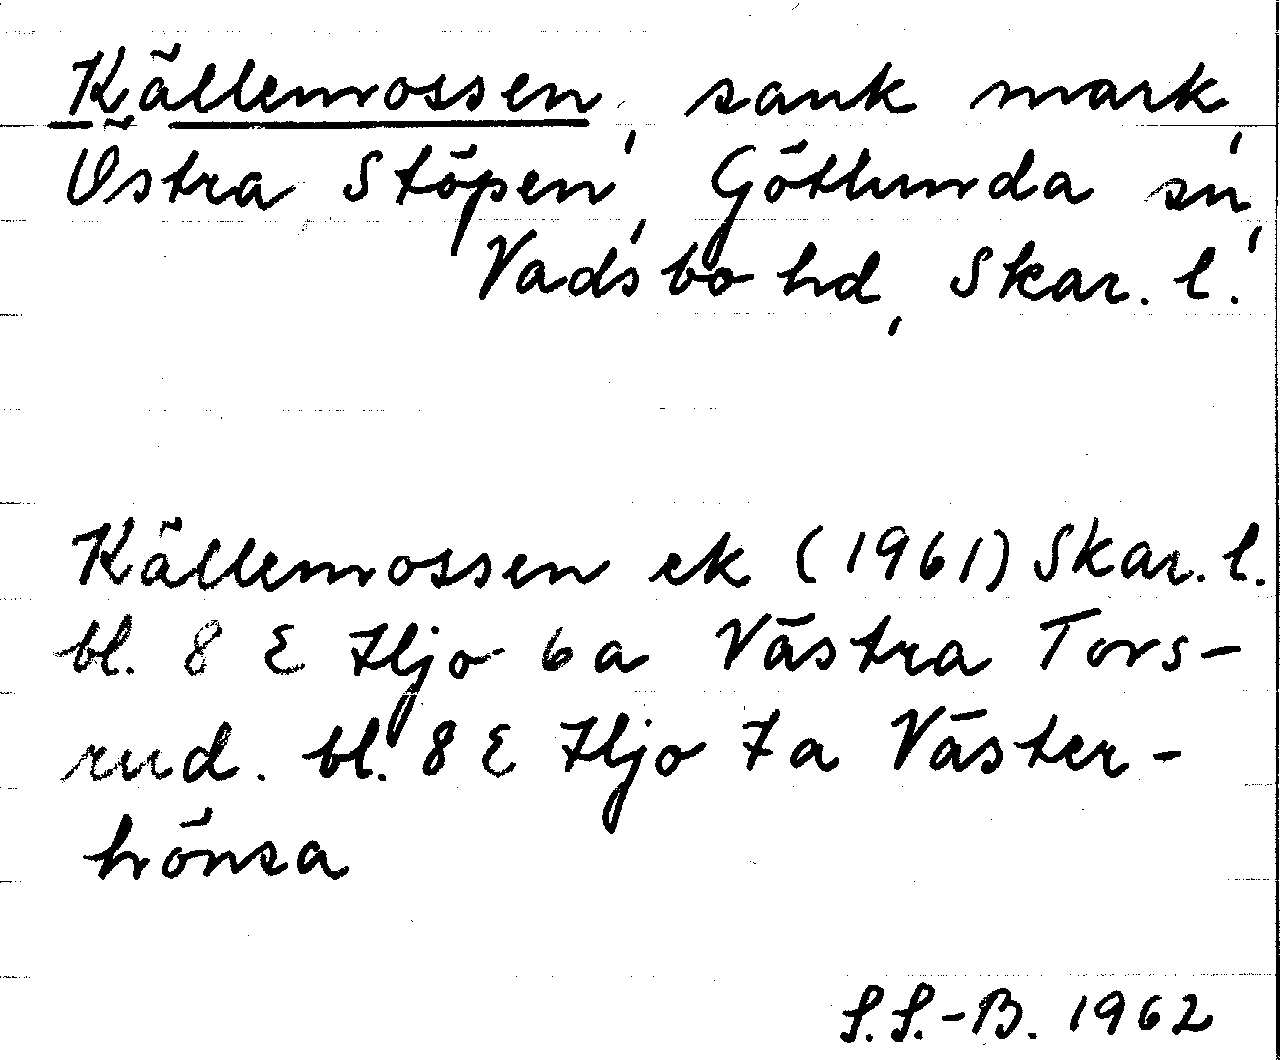 Källemossen, sank mark,
Östra Stöpen, Götlunda sn,
Vadsbo hd, Skar. l.
Källemossen ek (1961) Skar. l.
bl. 8 E Hjo 6a Västra Tors-
rud. bl. 8 E Hjo 7a Väster-
hönsa
S.S.-B. 1962